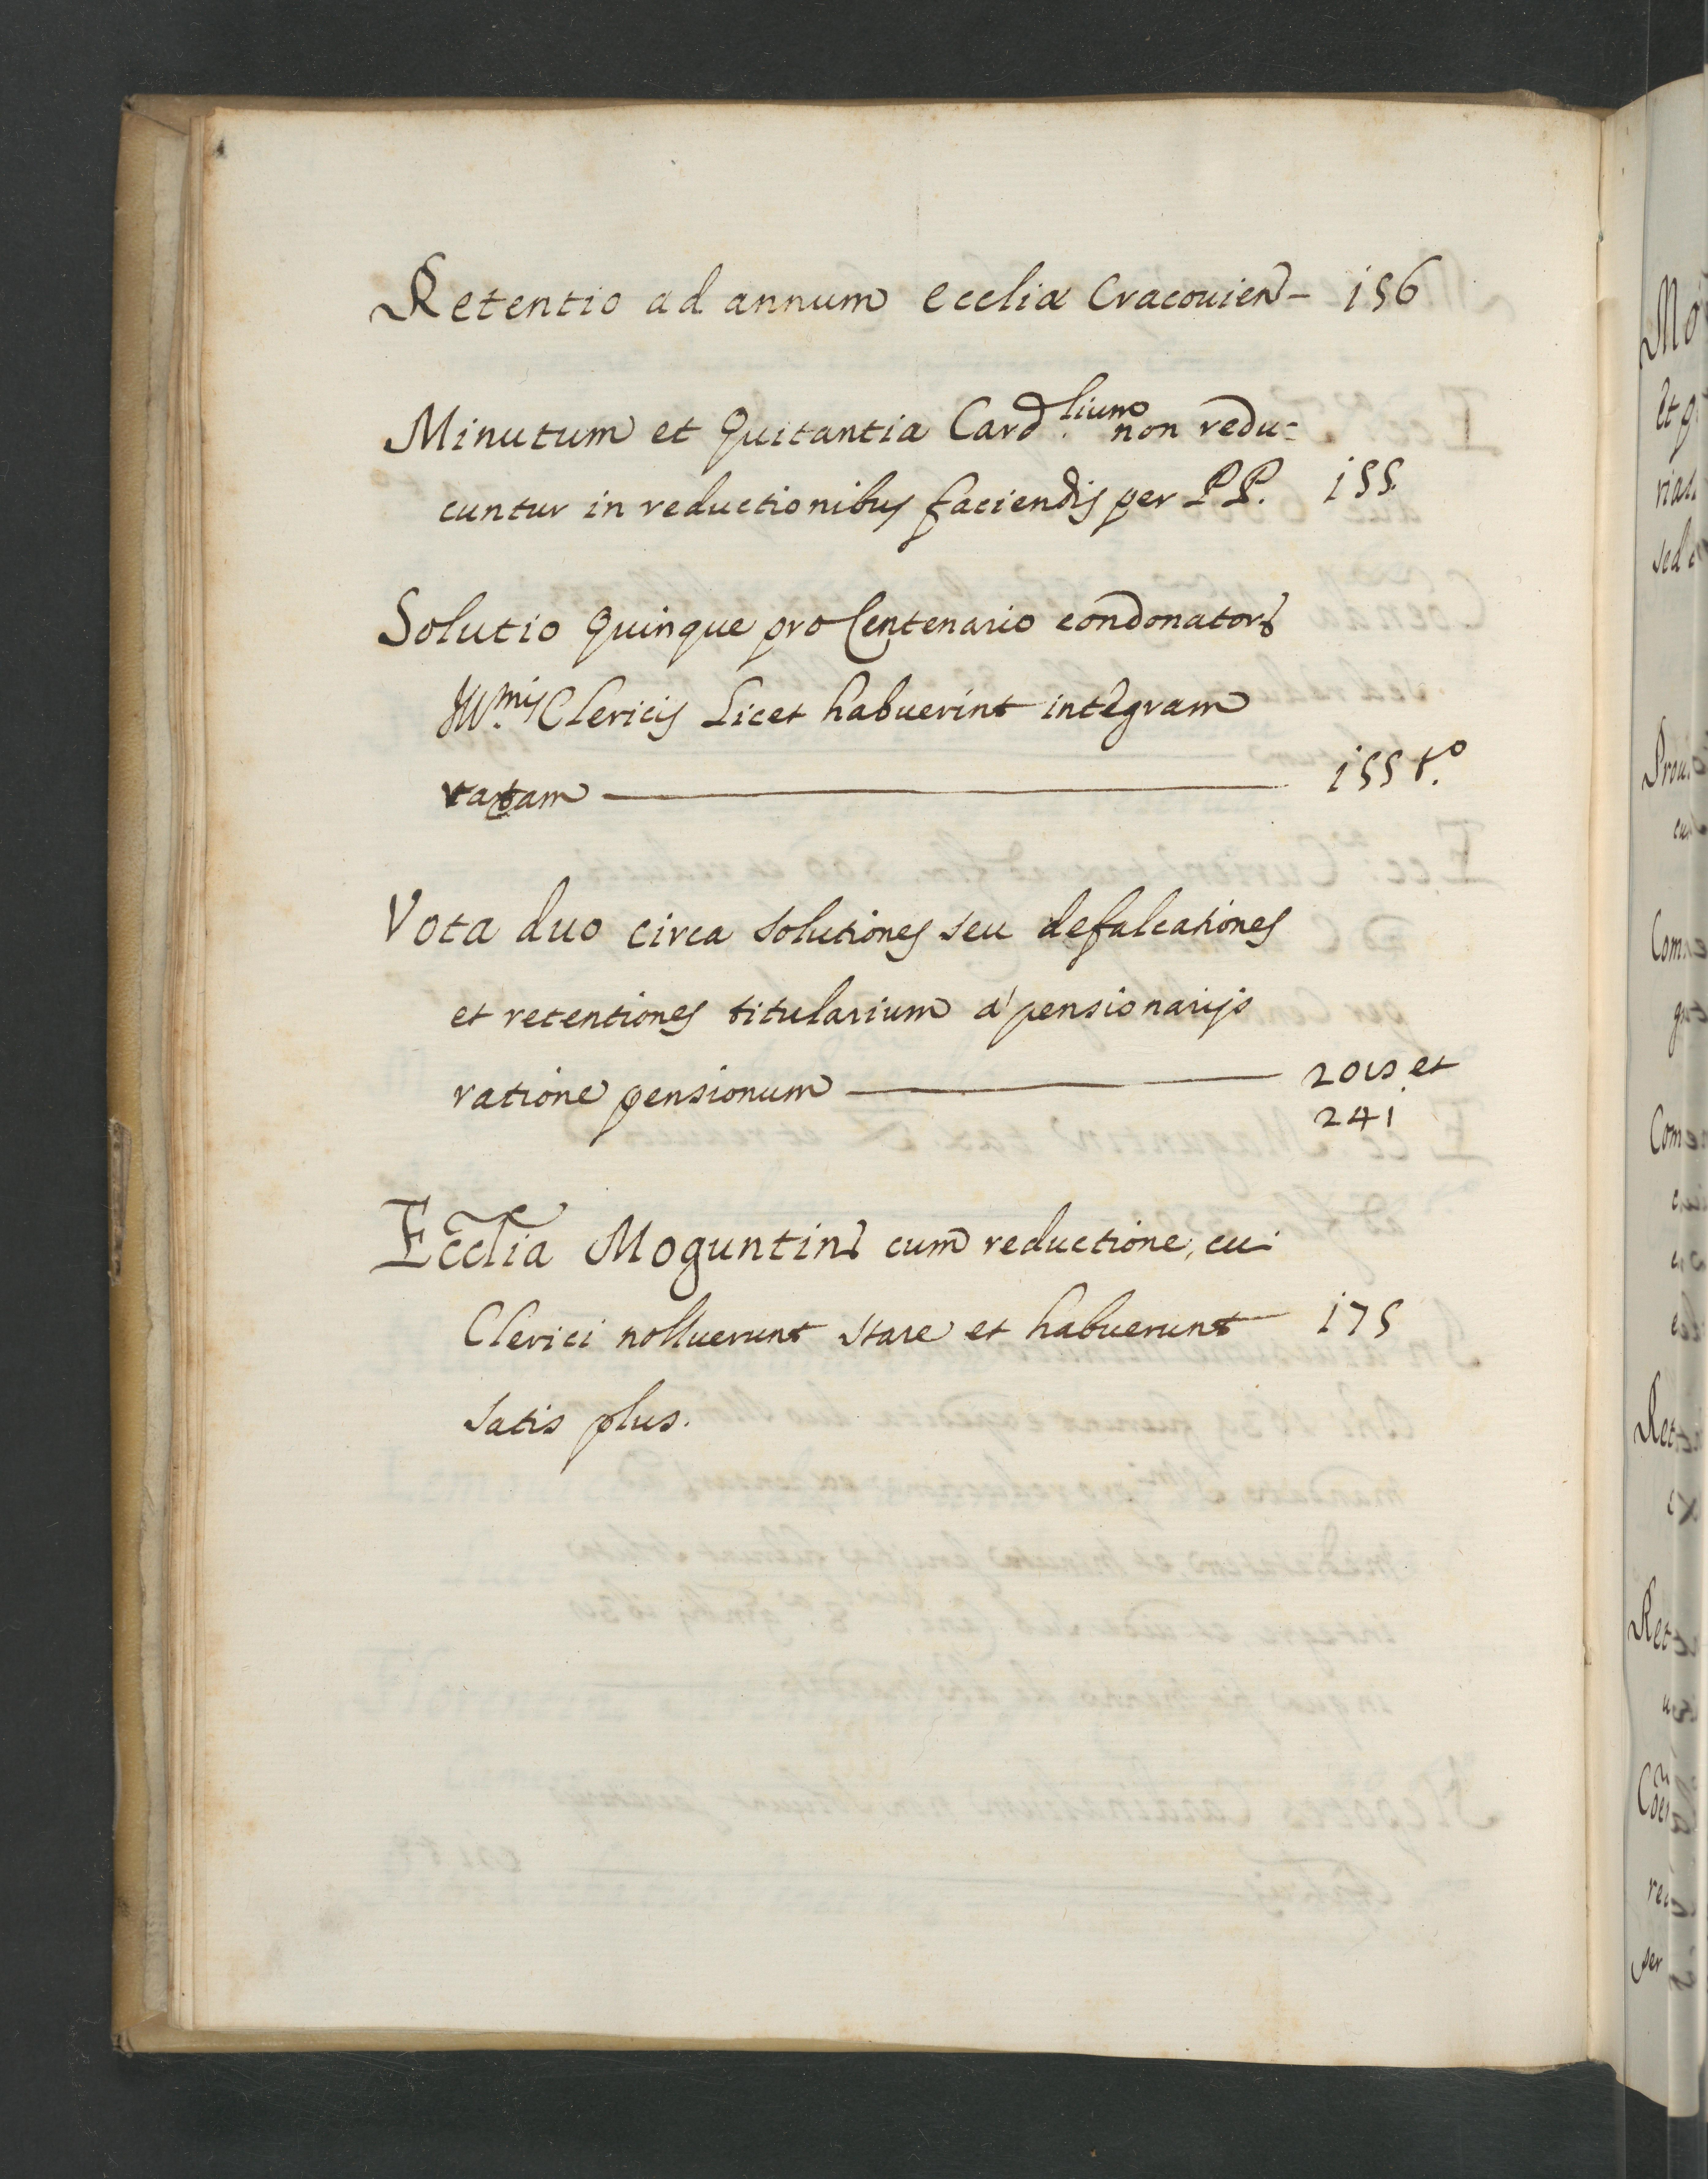 Retentio ad annum ecclia Cracouien - 156
Minutum et Quitantia Card.lium non redu=
cuntur in reductionibus faciendis per P.P. 155.
Solutio Quinque pro Centenario condonator
Ill.mis Clericis Licet habuerint integram
ratam 155 t.o
Vota duo circa solutiones seu defalcationes
et retentiones titularium à pensionarijs
ratione pensionum et
241
Ecclia Moguntin cum reductione, cui
Clerici nolluerunt stare et habuerunt 175
satis plus.